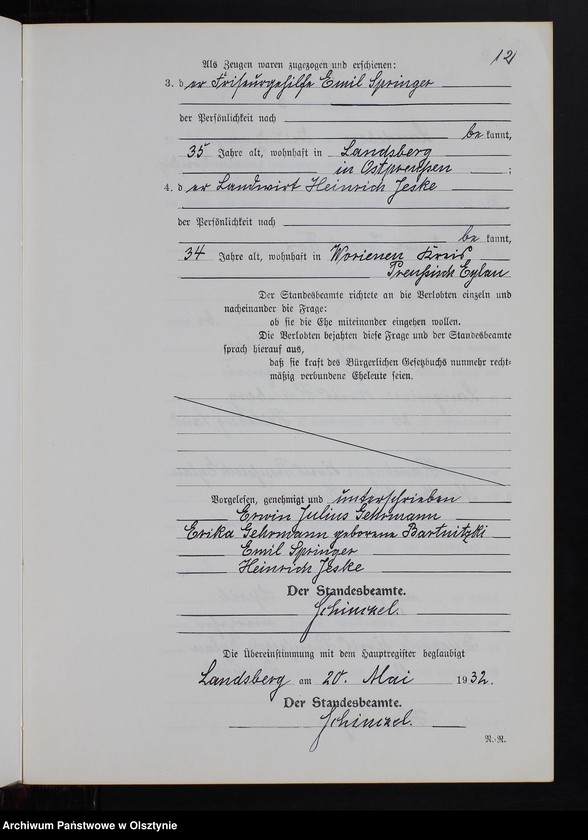 12
Als Zeugen waren zugezogen und erschienen:
3. der Friseurgehilfe Emil Springer
der Persönlichkeit nach
be kannt,
35 Jahre alt, wohnhaft in Landsberg
in Ostpreußen ;
4. der Landwirt Heinrich Jeske
der Persönlichkeit nach
be kannt,
34 Jahre alt, wohnhaft in Worienen Kreis
Preußisch Eylau
Der Standesbeamte richtete an die Verlobten einzeln und
nacheinander die Frage:
ob sie die Ehe miteinander eingehen wollen.
Die Verlobten bejahten diese Frage und der Standesbeamte
sprach hierauf aus,
daß sie kraft des Bürgerlichen Gesetzbuchs nunmehr recht-
mäßig verbundene Eheleute seien.
Vorgelesen, genehmigt und unterschrieben
Erwin Julius Gehrmann
Erika Gehrmann geborene Bartnitzki
Emil Springer
Heinrich Jeske
Der Standesbeamte.
Schinckel.
Die Übereinstimmung mit dem Hauptregister beglaubigt
Landsberg am 20. Mai 1932.
Der Standesbeamte.
Schinckel.
R.-R.
Archiwum Państwowe w Olsztynie